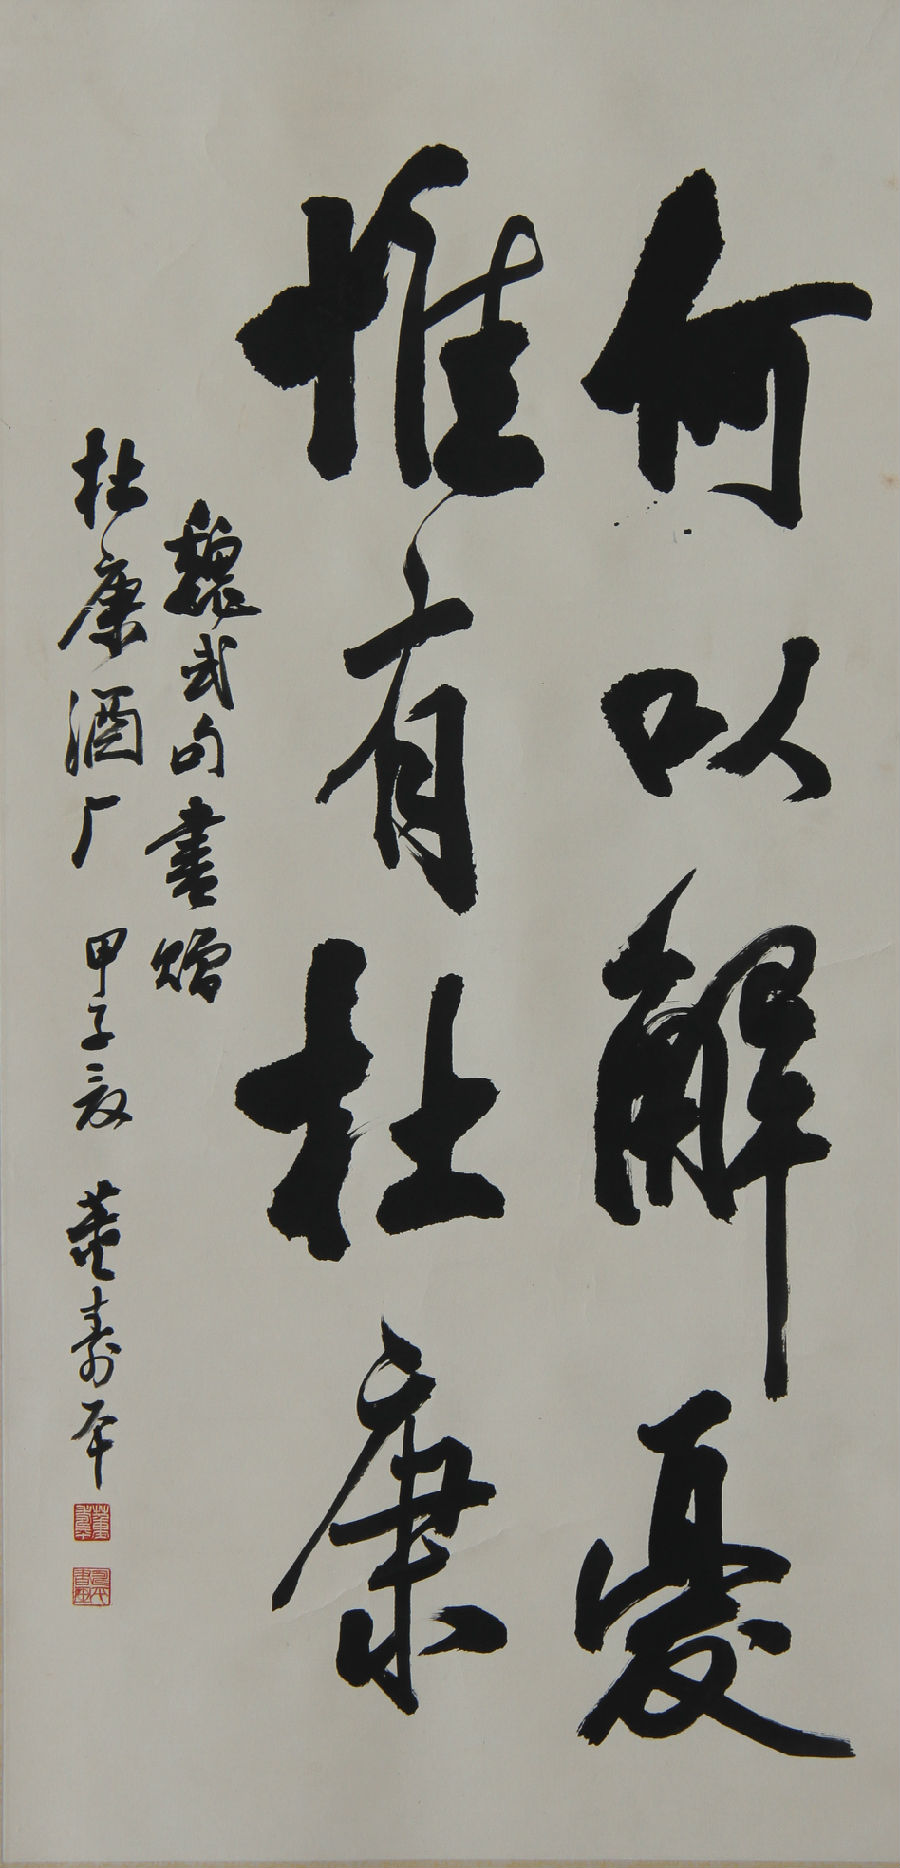 何以解憂
惟有杜康
魏武句書贈
杜康酒厂 甲子夏 董壽平